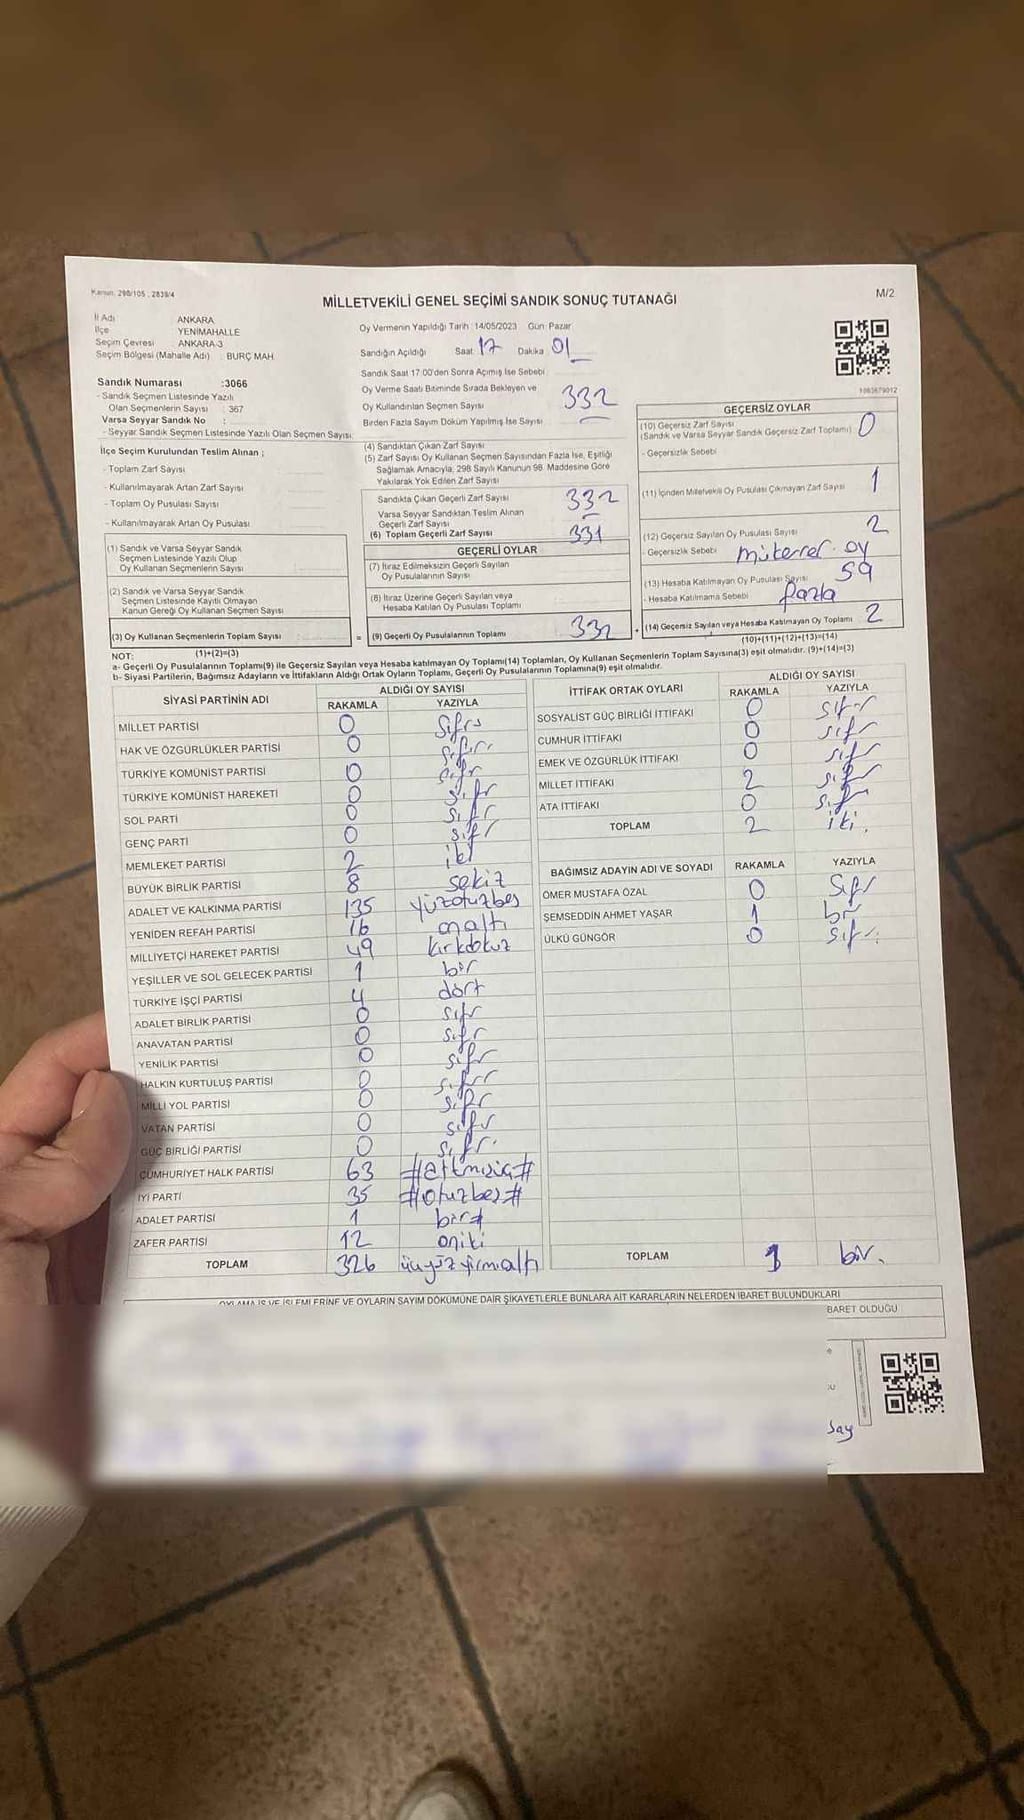 Kanun: 298/105, 2839/4
MİLLETVEKİLİ GENEL SEÇİMİ SANDIK SONUÇ TUTANAĞI
M/2
İl Adı ANKARA
İlçe YENİMAHALLE
Seçim Çevresi ANKARA-3
Seçim Bölgesi (Mahalle Adı) : BURÇ MAH.
Sandık Numarası :3066
- Sandık Seçmen Listesinde Yazılı
Olan Seçmenlerin Sayısı : 367
Varsa Seyyar Sandık No :
- Seyyar Sandık Seçmen Listesinde Yazılı Olan Seçmen Sayısı:
İlçe Seçim Kurulundan Teslim Alınan ;
- Toplam Zarf Sayısı
- Kullanılmayarak Artan Zarf Sayısı
- Toplam Oy Pusulası Sayısı
- Kullanılmayarak Artan Oy Pusulası
(1) Sandık ve Varsa Seyyar Sandık
Seçmen Listesinde Yazılı Olup
Oy Kullanan Seçmenlerin Sayısı
(2) Sandık ve Varsa Seyyar Sandık
Seçmen Listesinde Kayıtlı Olmayan
Kanun Gereği Oy Kullanan Seçmen Sayısı
(3) Oy Kullanan Seçmenlerin Toplam Sayısı
(1)+(2)=(3)
Oy Vermenin Yapıldığı Tarih :14/05/2023 Gün: Pazar
Sandığın Açıldığı Saat 17 Dakika 01
Sandık Saat 17:00'den Sonra Açımış İse Sebebi
Oy Verme Saati Bitiminde Sırada Bekleyen ve
Oy Kullandırılan Seçmen Sayısı 332
Birden Fazla Sayım Döküm Yapılmış İse Sayısı
(4) Sandıktan Çıkan Zarf Sayısı
(5) Zarf Sayısı Oy Kullanan Seçmen Sayısından Fazla İse, Eşitliği
Sağlamak Amacıyla, 298 Sayılı Kanunun 98. Maddesine Göre
Yakılarak Yok Edilen Zarf Sayısı
Sandıkta Çıkan Geçerli Zarf Sayısı 332
Varsa Seyyar Sandıktan Teslim Alınan
Geçerli Zarf Sayısı
(6) Toplam Geçerli Zarf Sayısı 331
GEÇERLİ OYLAR
(7) İtiraz Edilmeksizin Geçerli Sayılan
Oy Pusulalarının Sayısı
(8) İtiraz Üzerine Geçerli Sayılan veya
Hesaba Katılan Oy Pusulası Toplamı
= (9) Geçerli Oy Pusulalarının Toplamı 332
1083679012
GEÇERSİZ OYLAR
(10) Geçersiz Zarf Sayısı 0
(Sandık ve Varsa Seyyar Sandık Geçersiz Zarf Toplamı)
- Geçersizlik Sebebi
(11) İçinden Milletvekili Oy Pusulası Çıkmayan Zarf Sayısı 1
(12) Geçersiz Sayılan Oy Pusulası Sayısı 2
- Geçersizlik Sebebi mükerrer oy
(13) Hesaba Katılmayan Oy Pusulası Sayısı 59
- Hesaba Katılmama Sebebi fazla
+ (14) Geçersiz Sayılan veya Hesaba Katılmayan Oy Toplamı 2
(10)+(11)+(12)+(13)=(14)
NOT:
a- Geçerli Oy Pusulalarının Toplamı(9) ile Geçersiz Sayılan veya Hesaba katılmayan Oy Toplamı(14) Toplamları, Oy Kullanan Seçmenlerin Toplam Sayısına(3) eşit olmalıdır. (9)+(14)=(3)
b- Siyasi Partilerin, Bağımsız Adayların ve İttifakların Aldığı Ortak Oyların Toplamı, Geçerli Oy Pusulalarının Toplamına(9) eşit olmalıdır.
SİYASİ PARTİNİN ADI ALDIĞI OY SAYISI
RAKAMLA YAZIYLA
MİLLET PARTİSI 0 sıfır
HAK VE ÖZGÜRLÜKLER PARTİSİ 0 sıfır
TÜRKİYE KOMÜNİST PARTİSİ 0 sıfr
TÜRKİYE KOMÜNİST HAREKETİ 0 sıfr
SOL PARTİ 0 sıfr
GENÇ PARTİ 0 sıfr
MEMLEKET PARTİSİ 2 iki
BÜYÜK BİRLİK PARTİSİ 8 sekiz
ADALET VE KALKINMA PARTİSİ 135 yüzotuzbeş
YENİDEN REFAH PARTİSİ 16 onaltı
MİLLİYETÇİ HAREKET PARTİSİ 49 kırkdokuz
YEŞİLLER VE SOL GELECEK PARTİSİ 1 bir
TÜRKİYE İŞÇİ PARTİSİ 4 dört
ADALET BİRLİK PARTİSİ 0 sıfr
ANAVATAN PARTİSİ 0 sıfr
YENİLİK PARTİSİ 0 sıfr
HALKIN KURTULUŞ PARTİSİ 0 sıfır
MİLLİ YOL PARTİSİ 0 sıfr
VATAN PARTİSİ 0 sıfır
GÜÇ BİRLİĞİ PARTİSİ 0 sıfır
CUMHURİYET HALK PARTİSİ 63 #altmışüç#
İYİ PARTİ 35 #otuzbeş#
ADALET PARTİSİ 1 bir#
ZAFER PARTİSİ 12 oniki
TOPLAM 326 üçyüzyirmialtı
İTTİFAK ORTAK OYLARI ALDIĞI OY SAYISI
RAKAMLA YAZIYLA
SOSYALİST GÜÇ BİRLİĞİ İTTİFAKI 0 sıfır
CUMHUR İTTİFAKI 0 sıfr
EMEK VE ÖZGÜRLÜK İTTİFAKI 0 sıfr
MİLLET İTTİFAKI 2 sıfr
ATA İTTİFAKI 0 sıfr
TOPLAM 2 iki.
BAĞIMSIZ ADAYIN ADI VE SOYADI RAKAMLA YAZIYLA
ÖMER MUSTAFA ÖZAL 0 sıfr
ŞEMSEDDİN AHMET YAŞAR 1 bir
ÜLKÜ GÜNGÖR 0 sıfır
TOPLAM 1 bir.
OYLAMA İŞ VE İŞLEMLERİNE VE OYLARIN SAYIM DÖKÜMÜNE DAİR ŞİKAYETLERLE BUNLARA AİT KARARLARIN NELERDEN İBARET BULUNDUKLARI
BARET OLDUĞU
Say